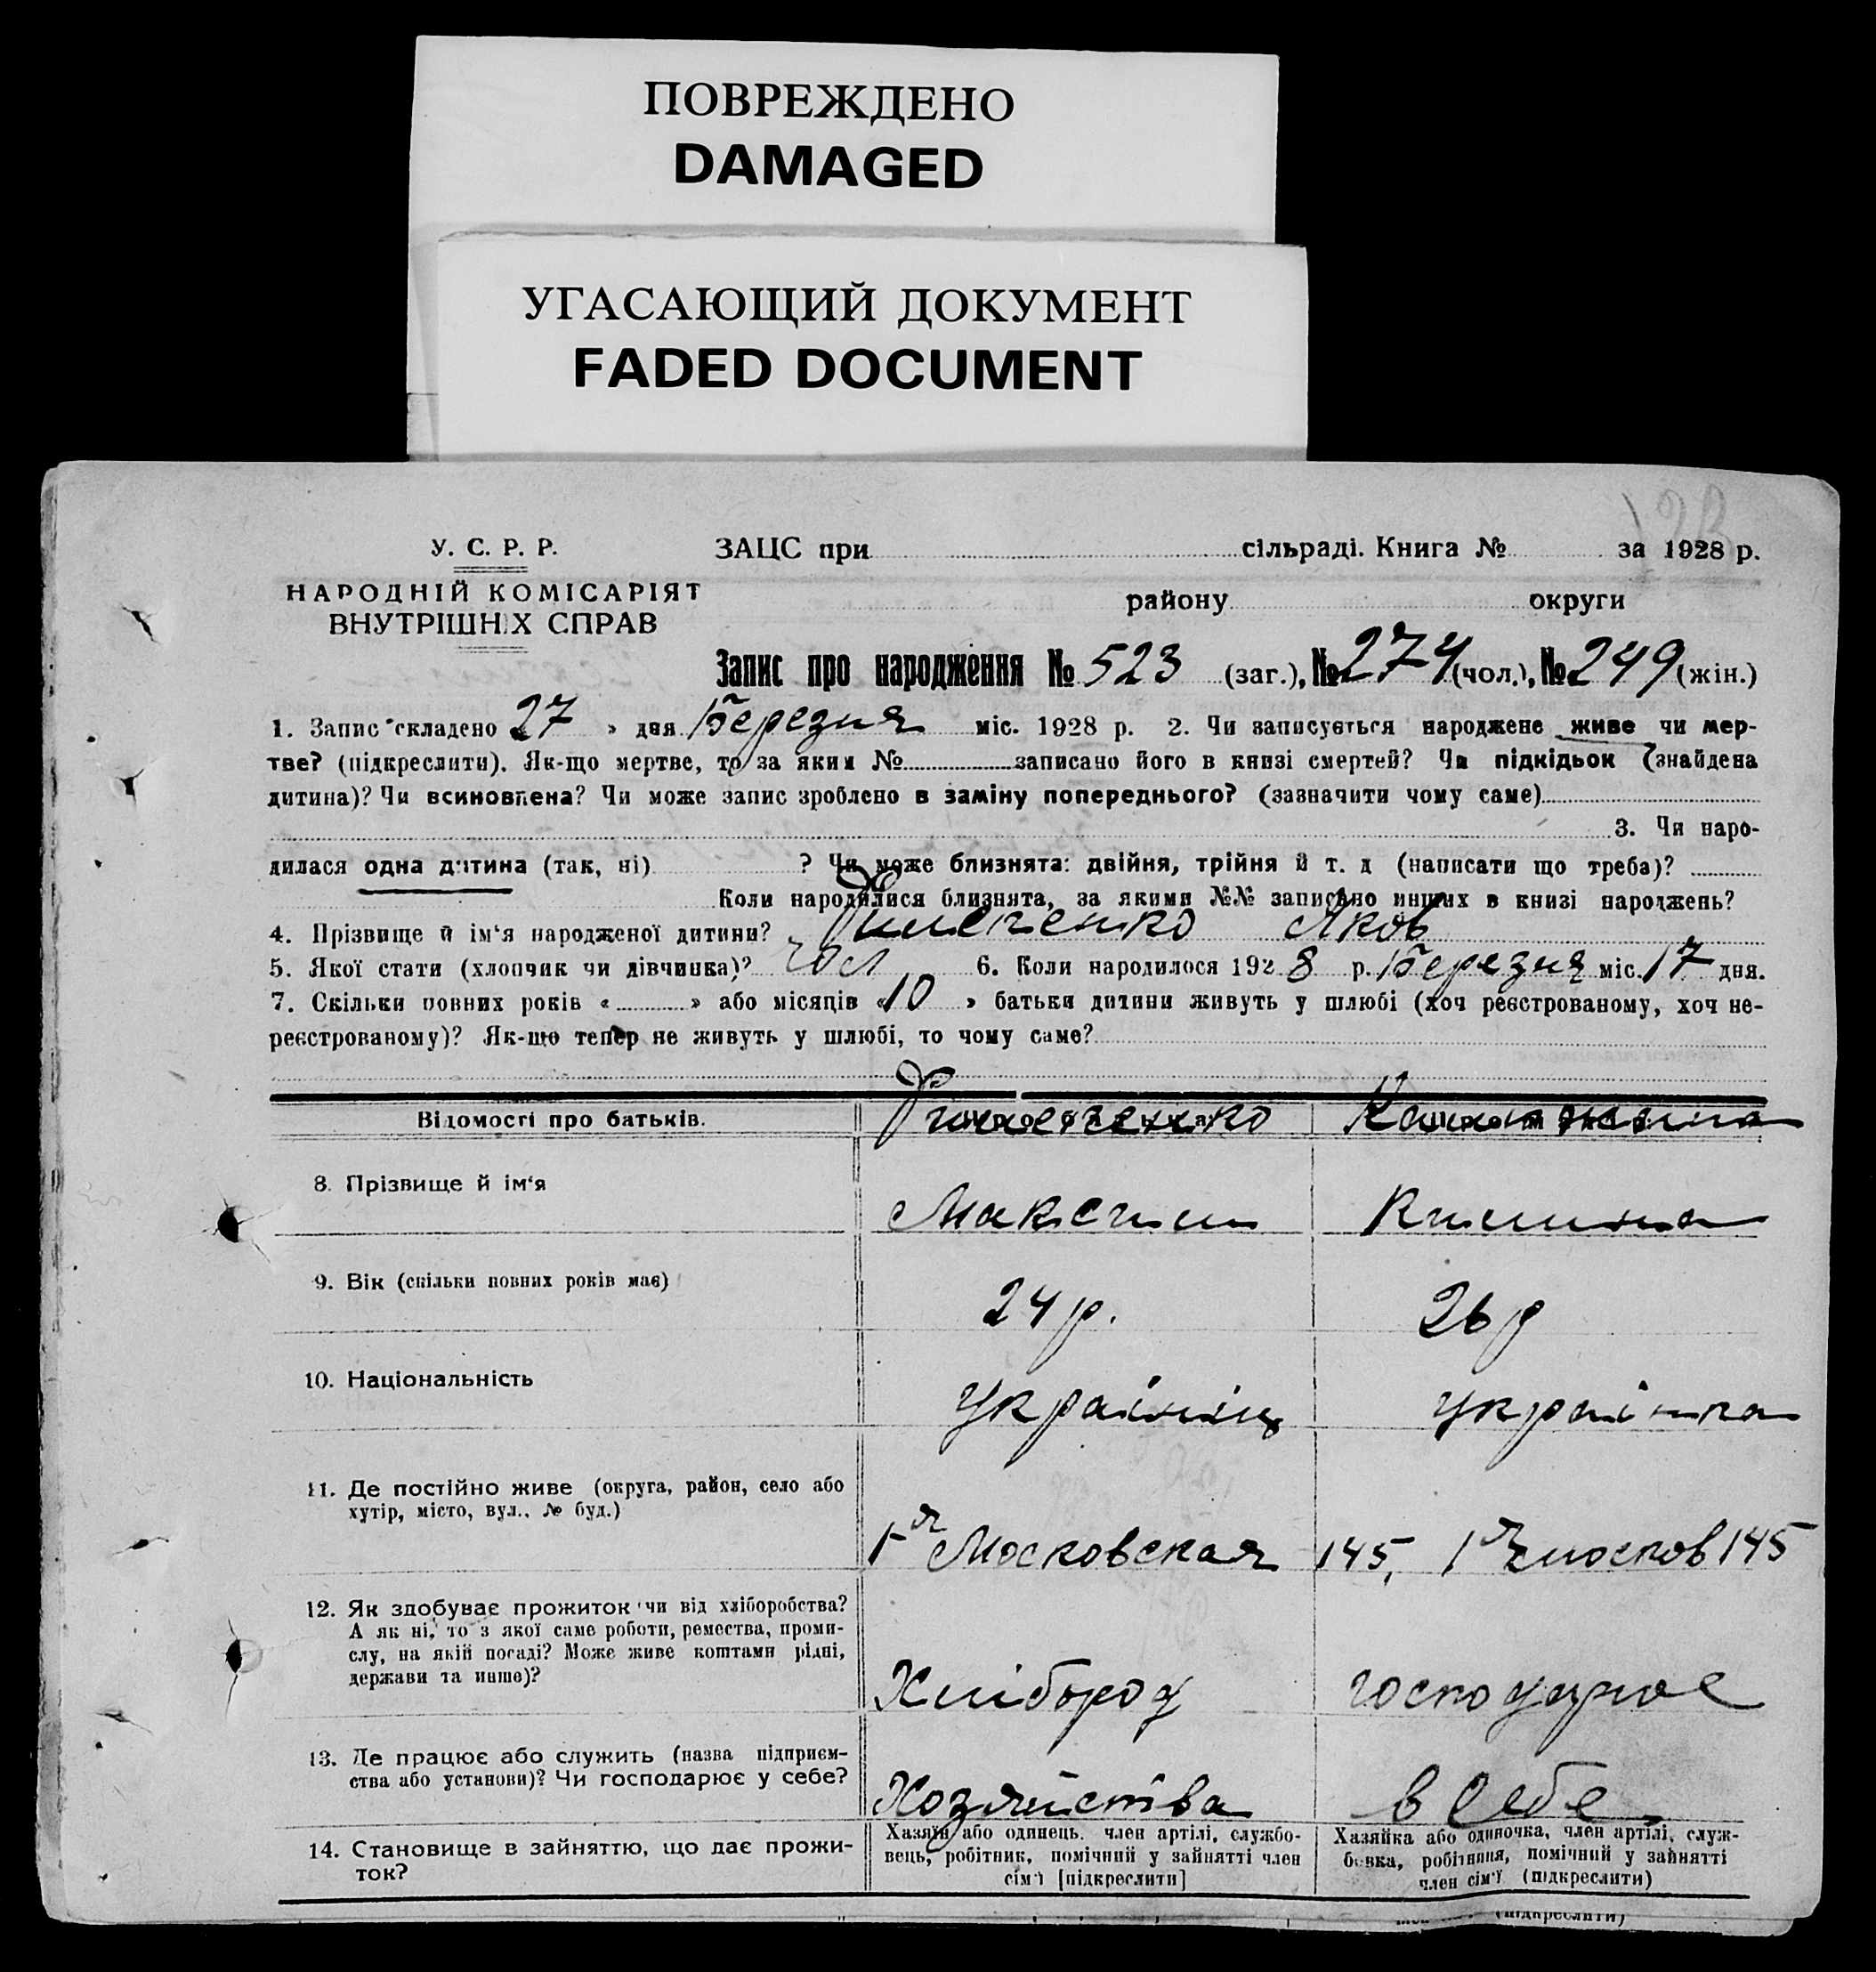 ПОВРЕЖДЕНО
DAMAGED
УГАСАЮЩИЙ ДОКУМЕНТ
FADED DOCUMENT
У. С. Р. Р. ЗАЦС при сільраді. Книга № за 1928 р.
НАРОДНІЙ КОМІСАРІЯТ
ВНУТРІШНІХ СПРАВ
району округи
Запис про народження № 523 (заг.), № 274 (чол.), № 249 (жін.)
1. Запис складено 27 » дня Березня міс. 1928 р. 2. Чи записується народжене живе чи мер-
тве? (підкреслити). Як-що мертве, то за яким № записано його в книзі смертей? Чи підкідьок (знайдена
дитина)? Чи всиновлена? Чи може запис зроблено в заміну попереднього? (зазначити чому саме)
3. Чи наро-
дилася одна дитина (так, ні) ? Чи може близнята: двійня, трійня й т. д (написати що треба)?
Коли народилися близнята, за якими №№ записано инших в книзі народжень?
4. Прізвище й ім‘я народженої дитини? Яков
5. Якої стати (хлопчик чи дівчинка)? чол 6. Коли народилося 1928 р. Березня міс. 17 дня.
7. Скільки повних років « » або місяців « 10 » батьки дитини живуть у шлюбі (хоч реєстрованому, хоч не-
реєстрованому)? Як-що тепер не живуть у шлюбі, то чому саме?
Відомості про батьків.
8. Прізвище й ім‘я Максим
9. Вік (скільки повних років має) 24 р. 26 р
10. Національність Українець Українка
11. Де постійно живе (округа, район, село або
хутір, місто, вул., № буд.)
1я Московская 145, 1я москов 145
12. Як здобуває прожиток чи від хліборобства?
А як ні, то з якої саме роботи, ремества, проми-
слу, на якій посаді? Може живе коштами рідні,
держави та инше)?
Хлібороб
13. Де працює або служить (назва підприєм-
ства або установи)? Чи господарює у себе?
Хозяйства в себе
14. Становище в зайняттю, що дає прожи-
ток?
Хазяїн або одинець, член артілі, службо-
вець, робітник, помічний у зайнятті член
сім‘ї [підкреслити]
Хазяйка або одиночка, член артілі, служ-
бовка, робітниця, помічний у зайнятті
член сім‘ї (підкреслити)
(підкреслити)